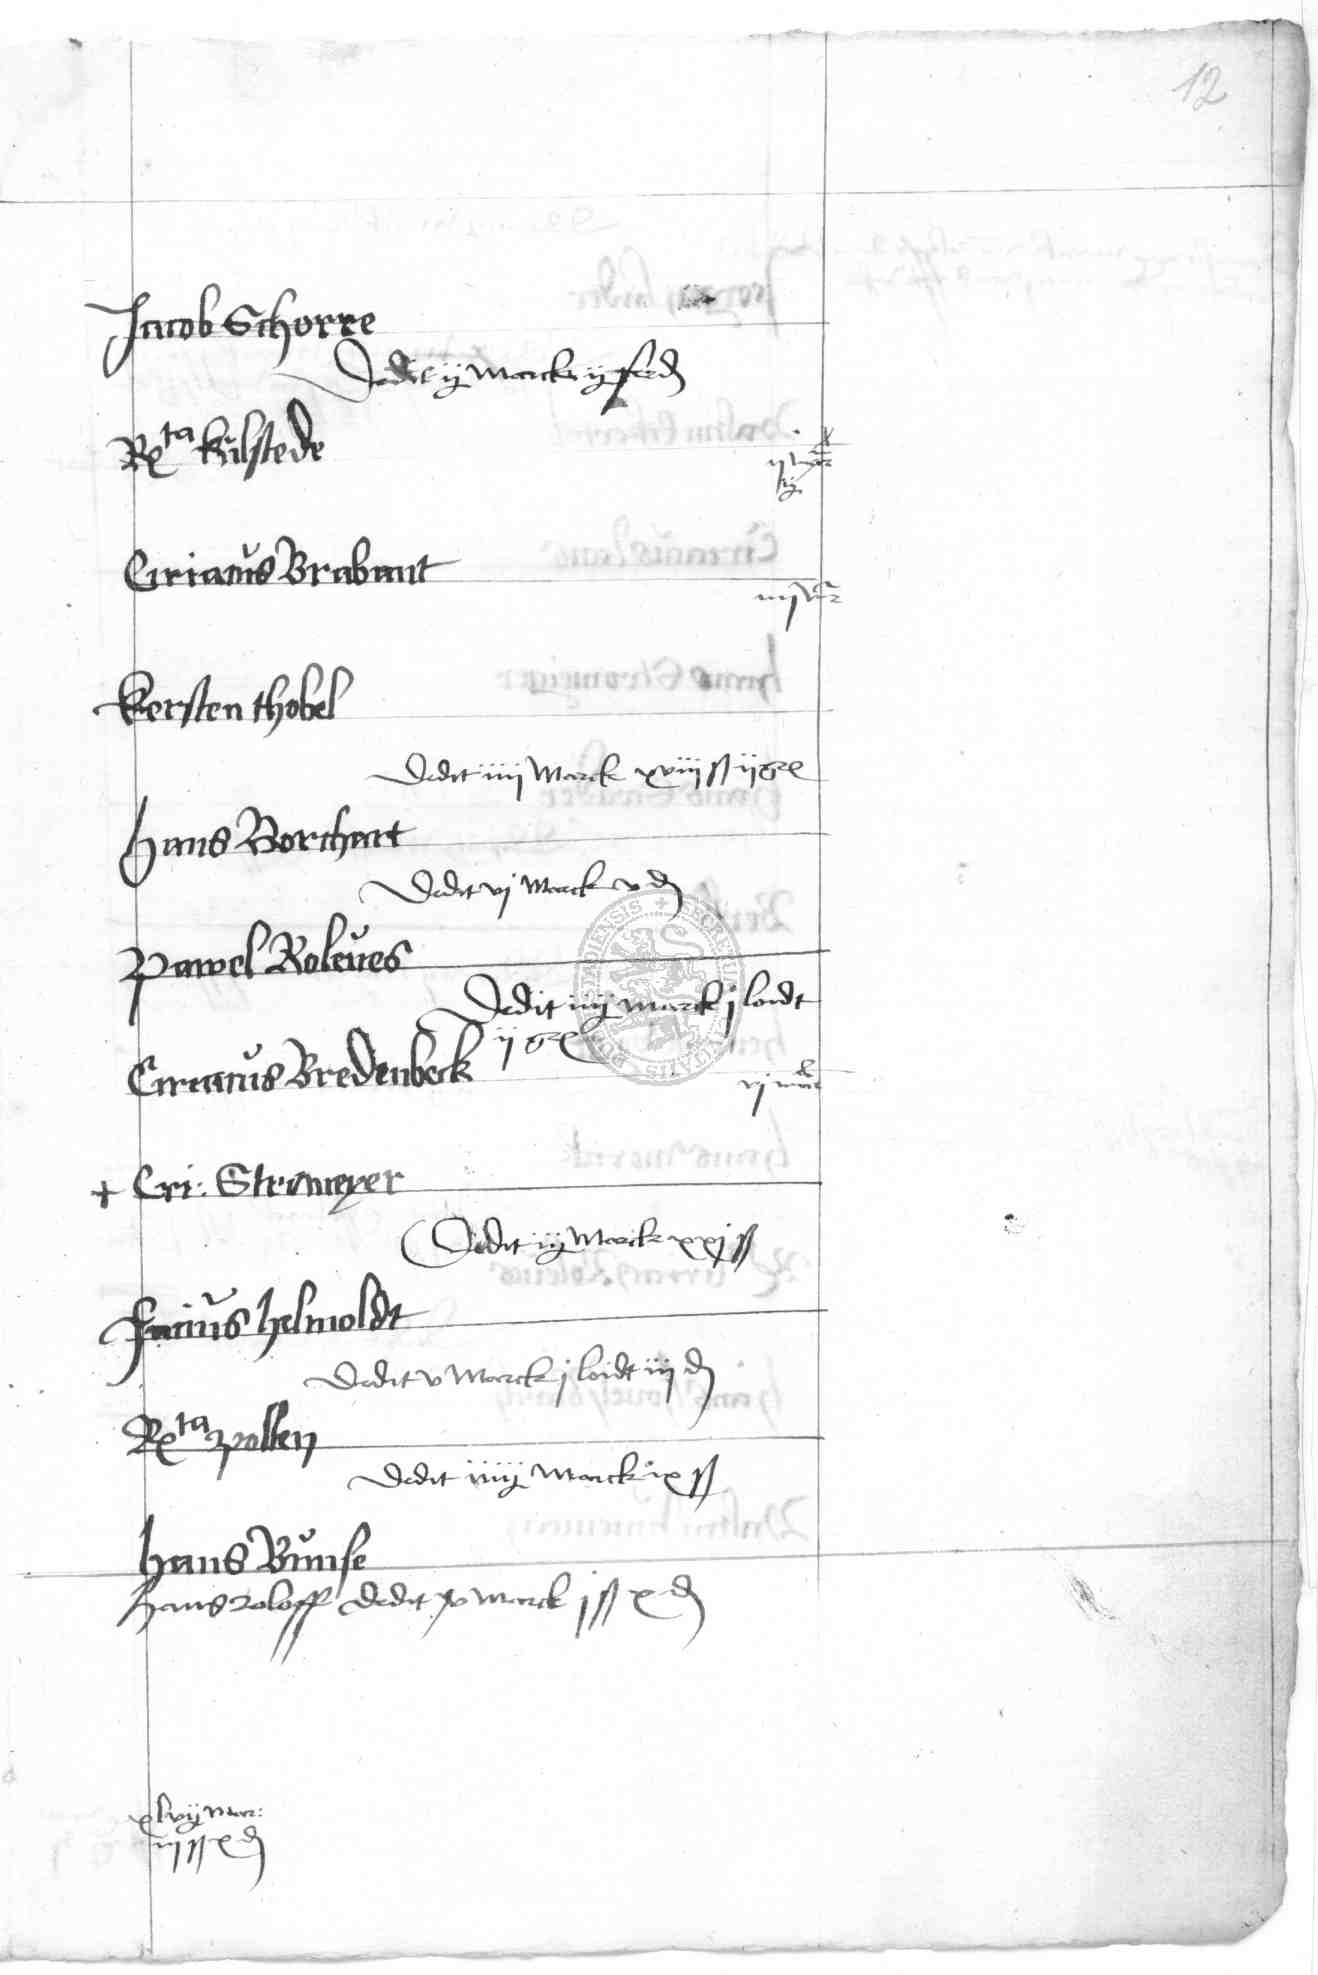 12
Jacob Schorre
Dedit ij Marck ij ferd
Rta Kulstede
Ciriacus Brabant
Kersten thobel
Dedit iiij Marck xviij ß ij
Hans Borchart
Dedit vj Marck v d
Pawel Roleues
Dedit iiij marck j loidt
ij
Ciriacus Bredenbeck
vj
+ Cri: Stromeyer
Dedit iij Marck xxj ß
Facius helmoldt
Dedit v Marck j loidt iij d
Rta zpollen
Dedit iiij Marck ix ß
Hans Bunse
Hans roloff dedit iv marck j ß x d
xlvij mar:
iij ß x d